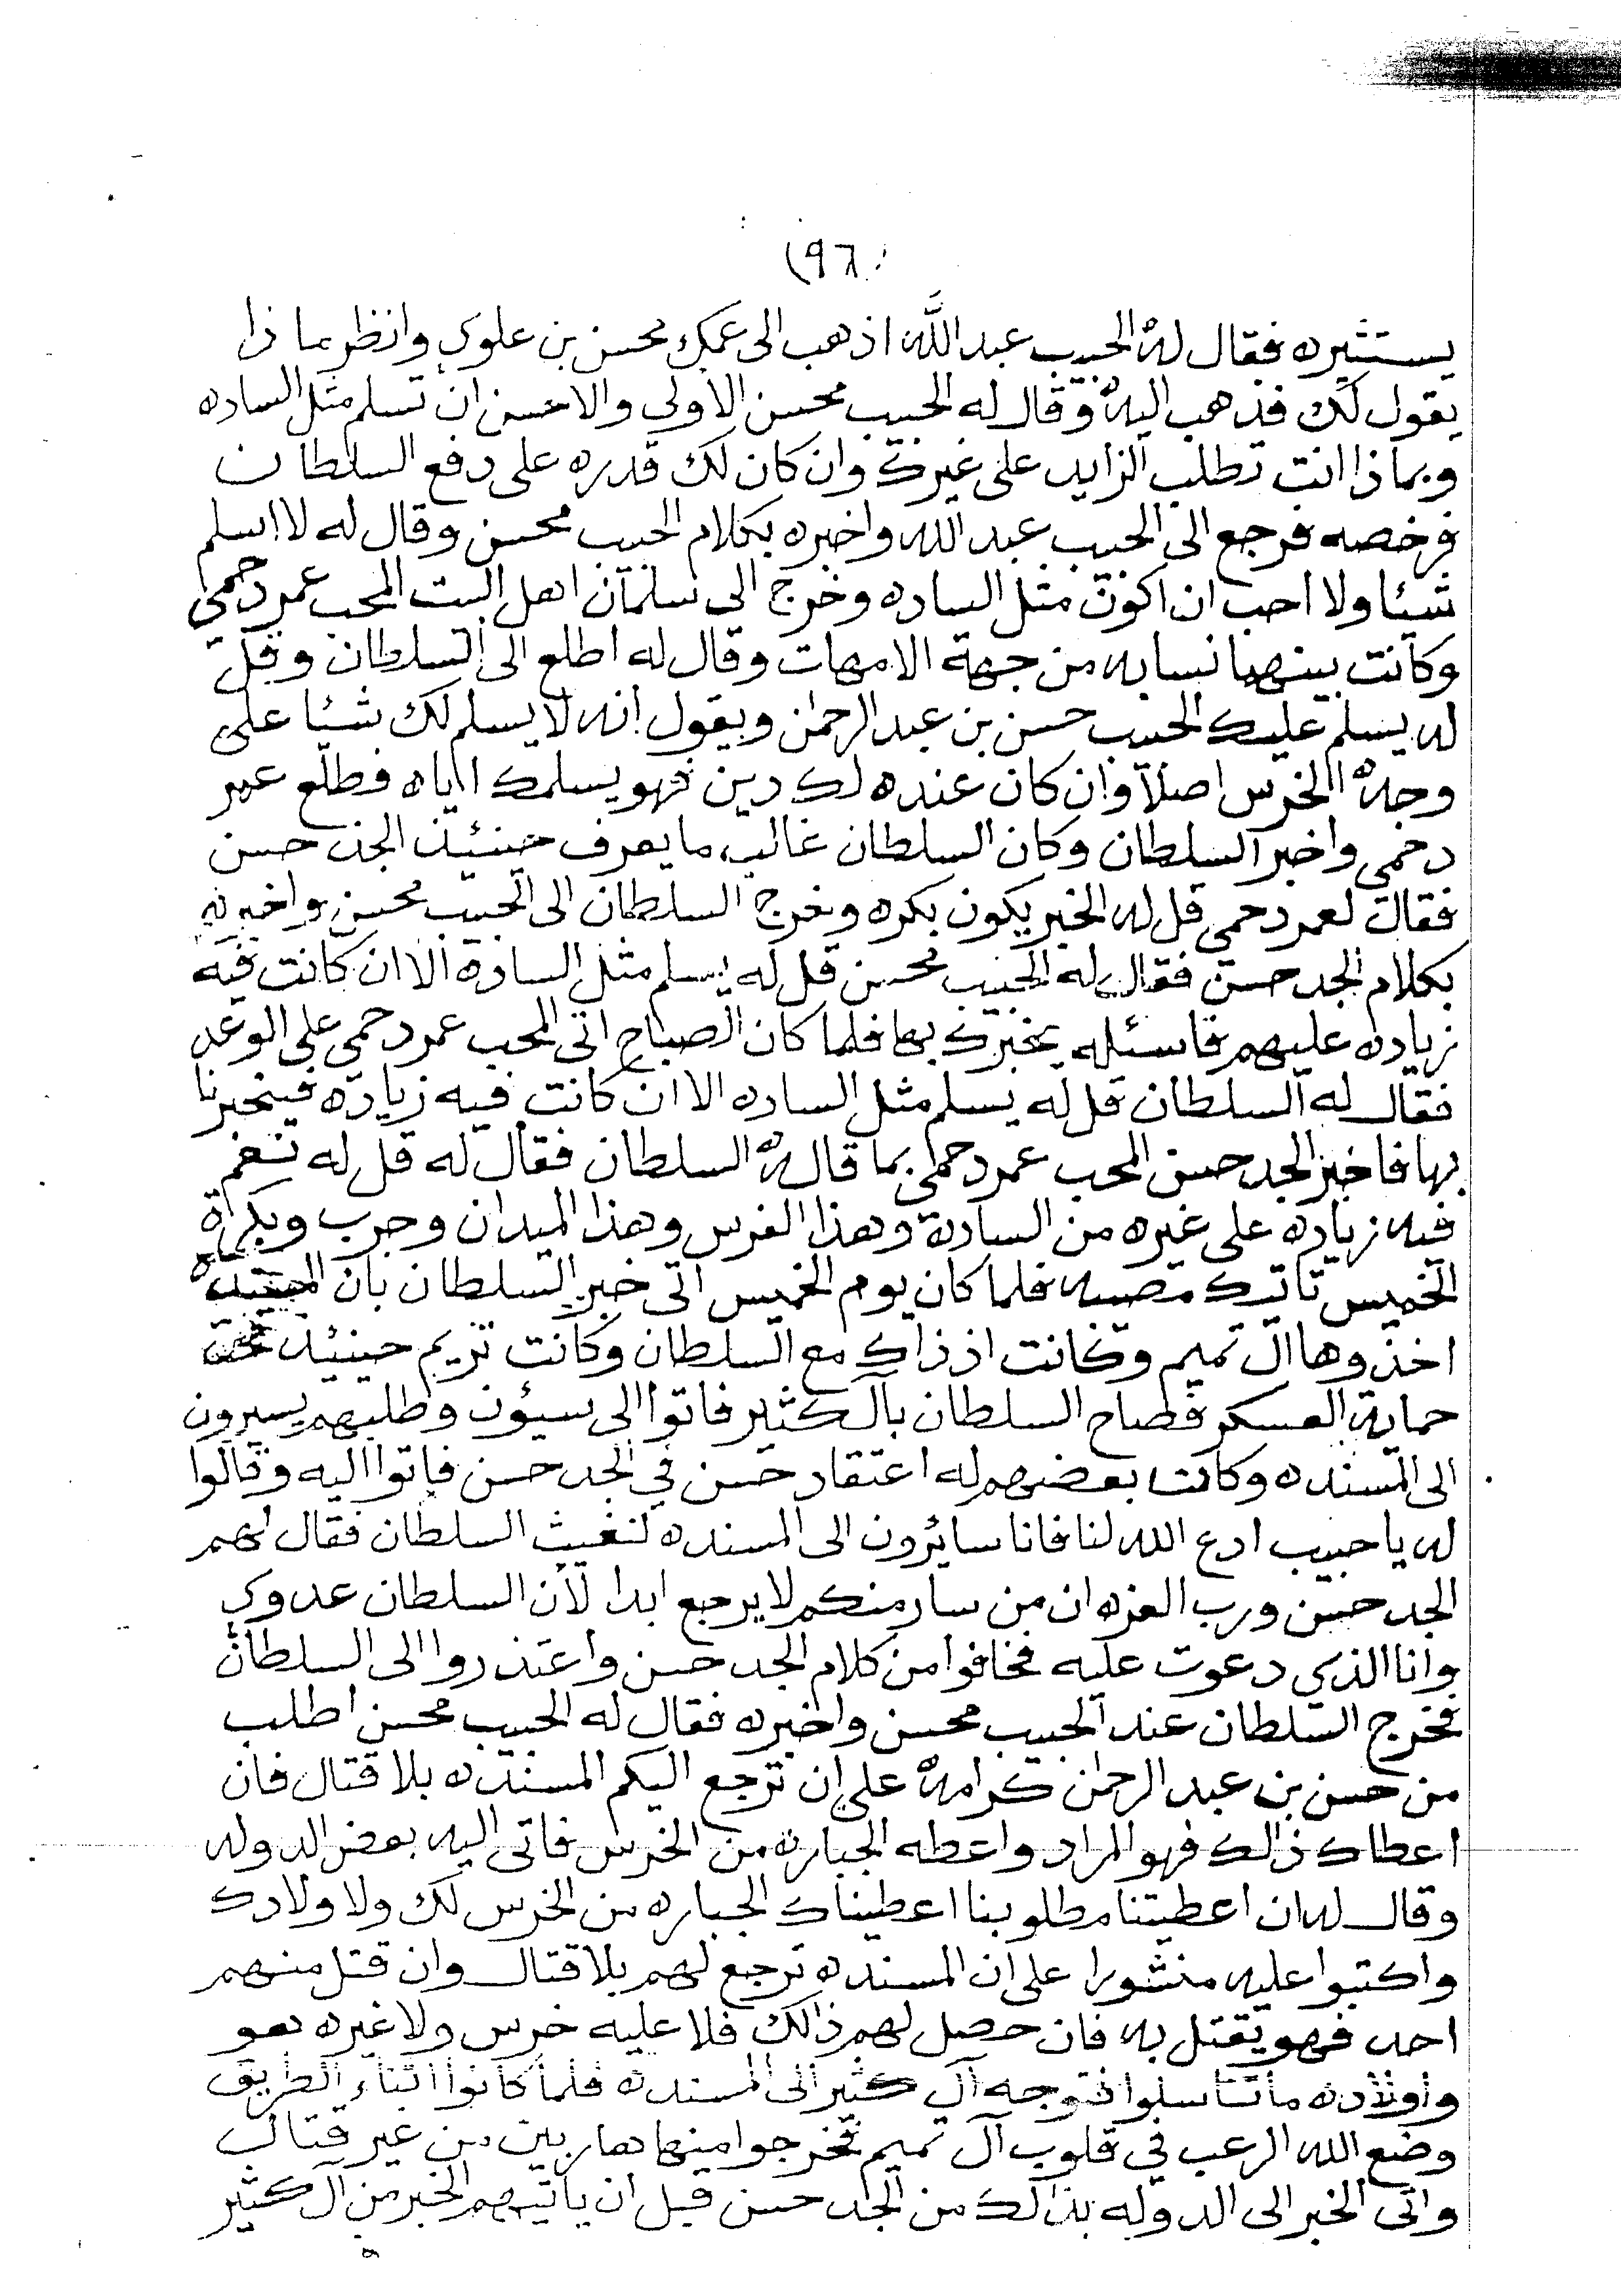 (٩٦)
يستثيره فقال له الحبيب عبد الله اذهب الى عمك محسن بن علوي وانظر ما ذا
يقول لك فذهب اليه وقال له الحبيب محسن الاولى والاحسن ان تسلم مثل الساده
وبماذا انت تطلب الزايد على غيرك وان كان لك قدره على دفع السلطان
فرخصه فرجع الى الحبيب عبد الله واخبره بكلام الحبيب محسن وقال له لا اسلم
شيئا ولا احب ان اكون مثل الساده وخرج الى سلمان اهل البيت المحب عمر دحمي
وكانت بينهما نسابه من جهة الامهات وقال له اطلع الى السلطان وقل
له يسلم عليك الحبيب حسن بن عبد الرحمان ويقول انه لا يسلم لك شيئا على
وجه الخرس اصلا وان كان عنده لك دين فهو يسلمك اياه فطلع عمر
دحمي واخبر السلطان وكان السلطان غالب ما يعرف حينئيذ الجد حسن
فقال لعمر دحمي قل له الخبر يكون بكره وخرج السلطان الى الحبيب محسن واخبره
بكلام الجد حسن فقال له الحبيب محسن قل له يسلم مثل الساده الا ان كانت فيه
زياده عليهم فاسئله يخبرك بها فلما كان الصباح اتى المحب عمر دحمي على الوعد
فقال له السلطان قل له يسلم مثل الساده الا ان كانت فيه زياده فيخبرنا
بها فاخبر الجد حسن المحب عمر دحمي بما قاله السلطان فقال له قل له نعم
فيه زياده على غيره من السادة وهذا الفرس وهذا الميدان وجرب وبكراة
الخميس تاتيك مصيبه فلما كان يوم الخميس اتى خبر السلطان بان
اخذوها ال تميم وكانت اذ ذاك مع السلطان وكانت تريم حينئيذ تحت
حماية العسكر فصاح السلطان بآل كثير فاتوا الى سيؤن وطلبهم يسيرون
الى المسنده وكانت بعضهم له اعتقاد حسن في الجد حسن فاتوا اليه وقالوا
له يا حبيب ادع الله لنا فانا سائرون الى المسنده لنغيث السلطان فقال لهم
الجد حسن ورب العزه ان من سار منكم لا يرجع ابدا لأن السلطان عدوي
وانا الذي دعوت عليه فخافوا من كلام الجد حسن واعتذروا الى السلطان
فخرج السلطان عند الحبيب محسن واخبره فقال له الحبيب محسن اطلب
من حسن بن عبد الرحمان كرامة على ان ترجع اليكم المسنده بلا قتال فان
اعطاك ذالك فهو المراد واعطه الجباره من الخرس فاتى اليه بعض الدوله
وقال له ان اعطيتنا مطلوبنا اعطيناك الجباره من الخرس لك ولاولادك
واكتبوا عليه منشورا على ان المسنده ترجع لهم بلا قتال وان قتل منهم
احد فهو يقتل به فان حصل لهم ذالك فلا عليه خرس ولا غيره هو
واولاده ما تناسلوا فتوجه آل كثير الى المسنده فلما كانوا اثناء الطريق
وضع الله الرعب في قلوب آل تميم فخرجوا منها هاربين من غير قتال
واتى الخبر الى الدوله بذالك من الجد حسن قبل ان ياتيهم الخبر من آل كثير